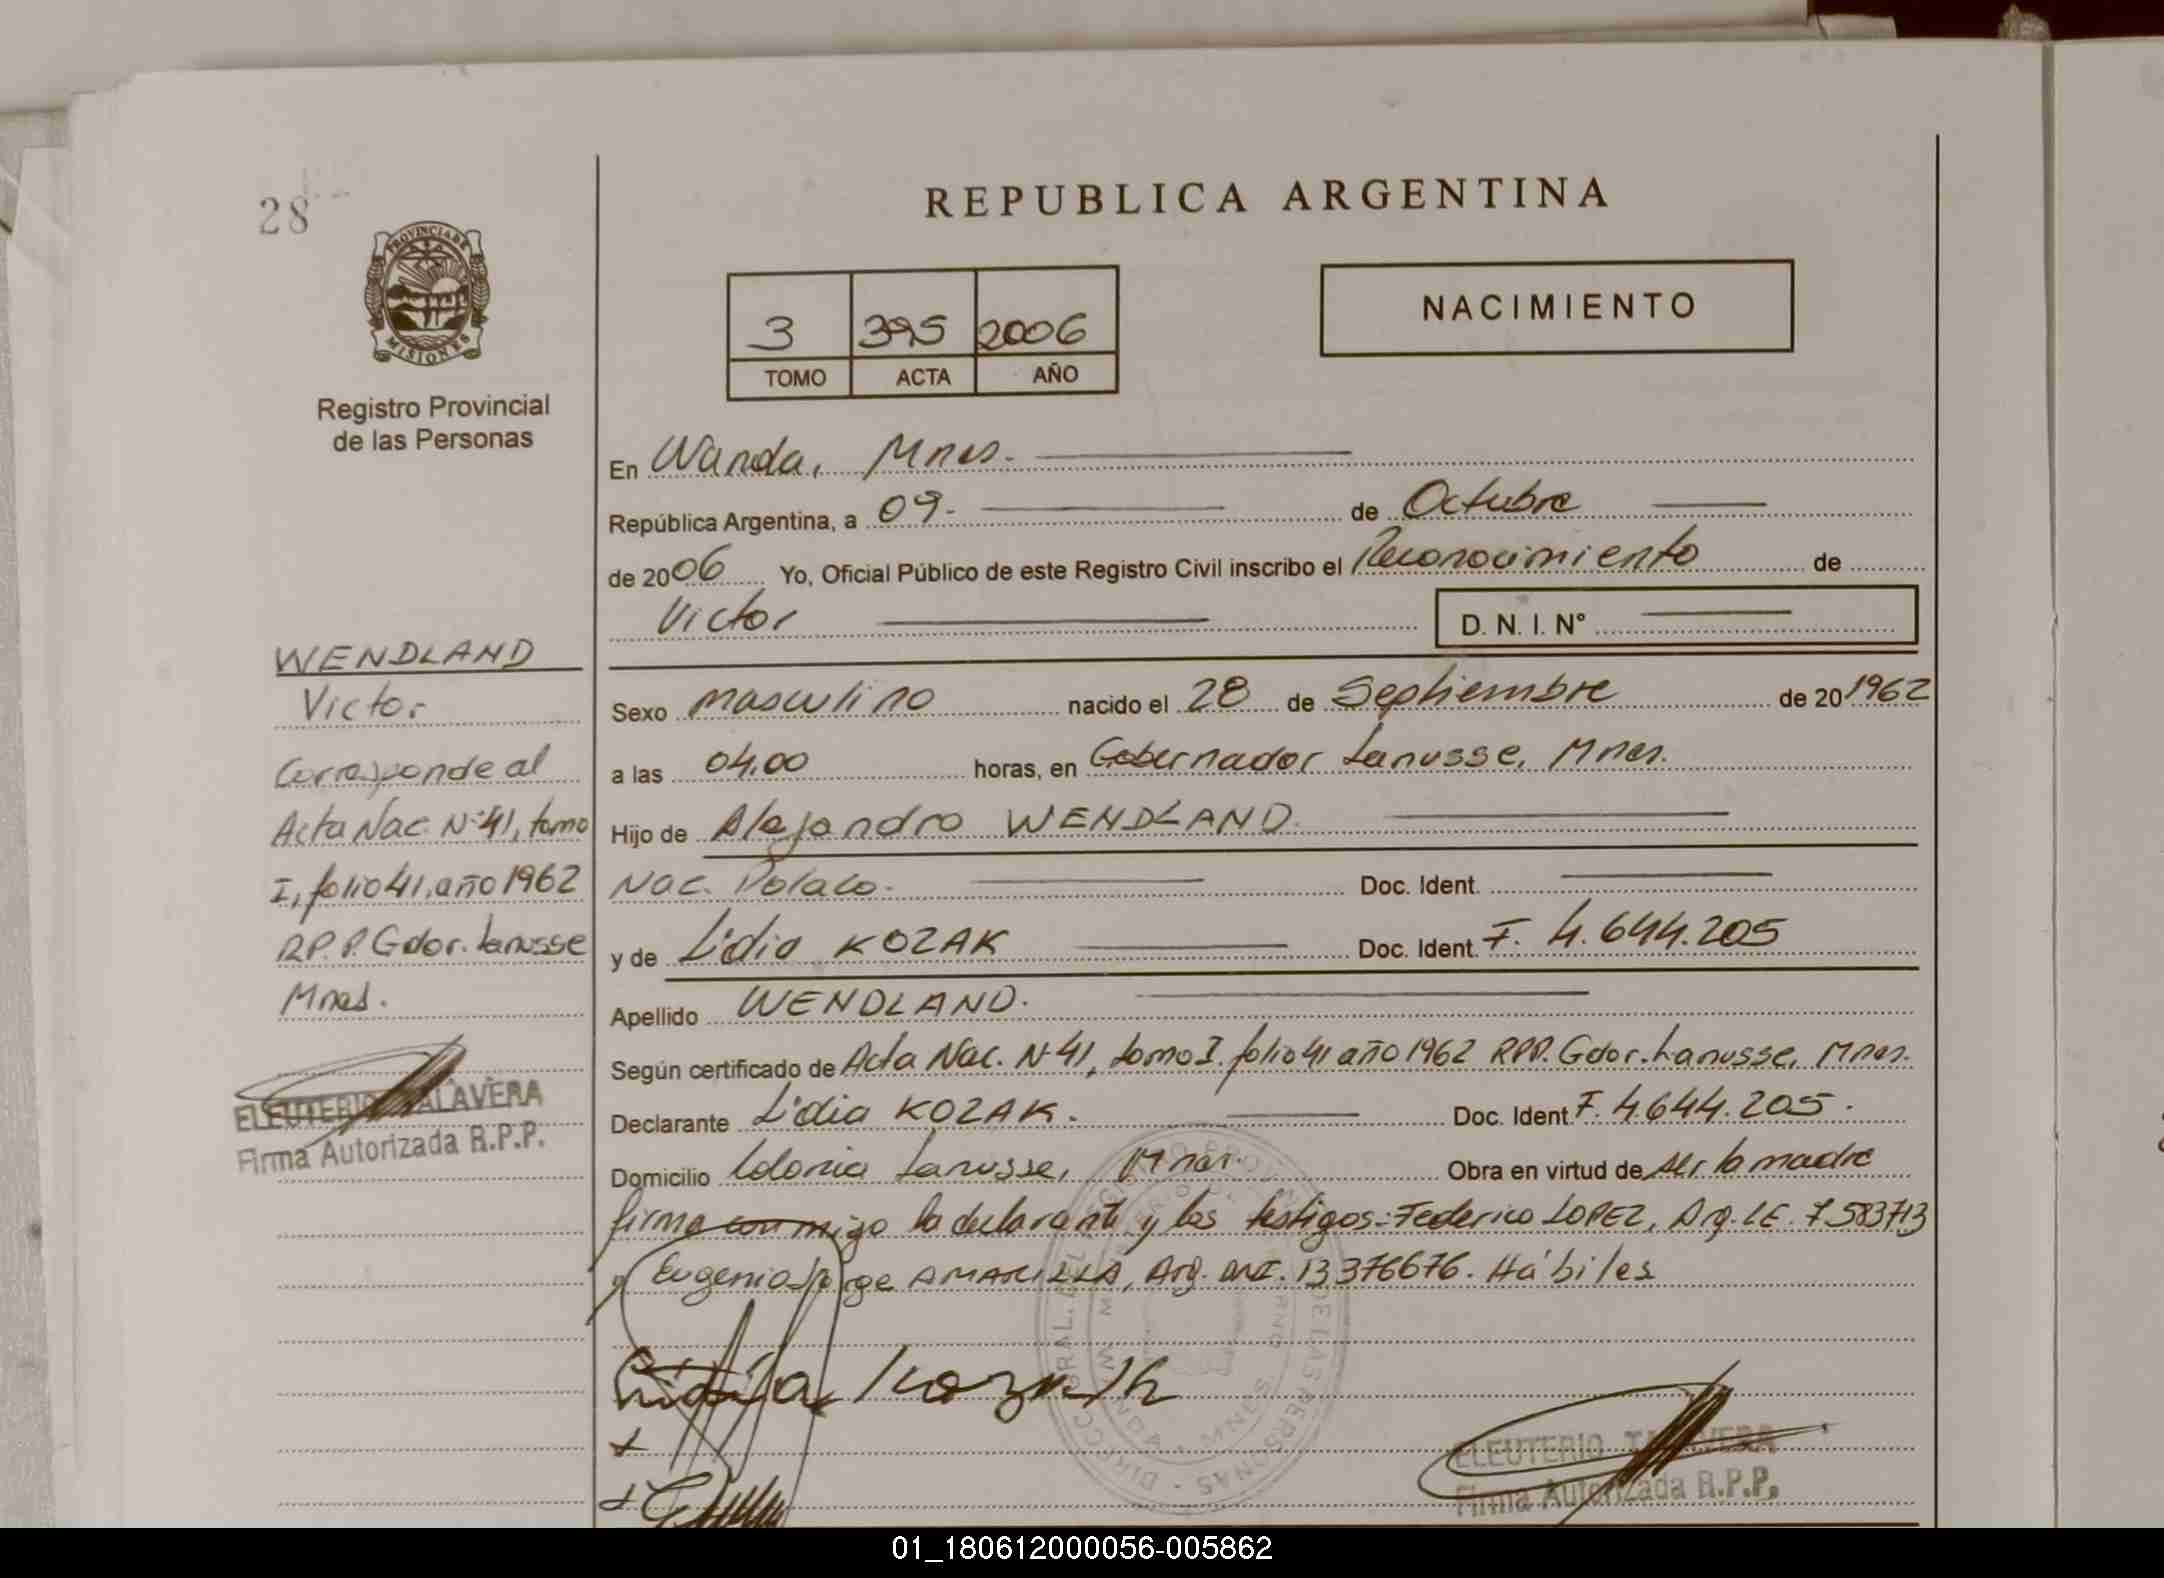 28
PROVINCIA DE
MISIONES
Registro Provincial
de las Personas
REPUBLICA ARGENTINA
3 395 2006
TOMO ACTA AÑO
NACIMIENTO
En Wanda, Mnes.
República Argentina, a 09. de Octubre
de 2006 Yo, Oficial Público de este Registro Civil inscribo el Reconocimiento de
Victor D. N. I. Nº
WENDLAND
Victor
Corresponde al
Acta Nac. Nº 41, tomo
I, folio 41, año 1962
R.P.P. Gdor. Lanusse
Mnes.
ELEUTERIO TALAVERA
Firma Autorizada R.P.P.
Sexo masculino nacido el 28 de Septiembre de 20 1962
a las 04,00 horas, en Gobernador Lanusse, Mnes.
Hijo de Alejandro WENDLAND.
Nac. Polaco. Doc. Ident.
y de Lidia KOZAK Doc. Ident. F. 4.644.205
Apellido WENDLAND.
Según certificado de Acta Nac. Nº 41, tomo I. folio 41 año 1962 RPP. Gdor. Lanusse, Mnes.
Declarante Lidia KOZAK. Doc. Ident. F. 4.644.205.
Domicilio Colonia Lanusse, Mnes. Obra en virtud de ser la madre
firma conmigo la declarante y los testigos: Federico LOPEZ, Arg. LE. 7.583713
y Eugenio Jorge AMARILLA, Arg. DNI. 13376676. Hábiles
Lidia Kozak
ELEUTERIO TALAVERA
Firma Autorizada R.P.P.
01_180612000056-005862